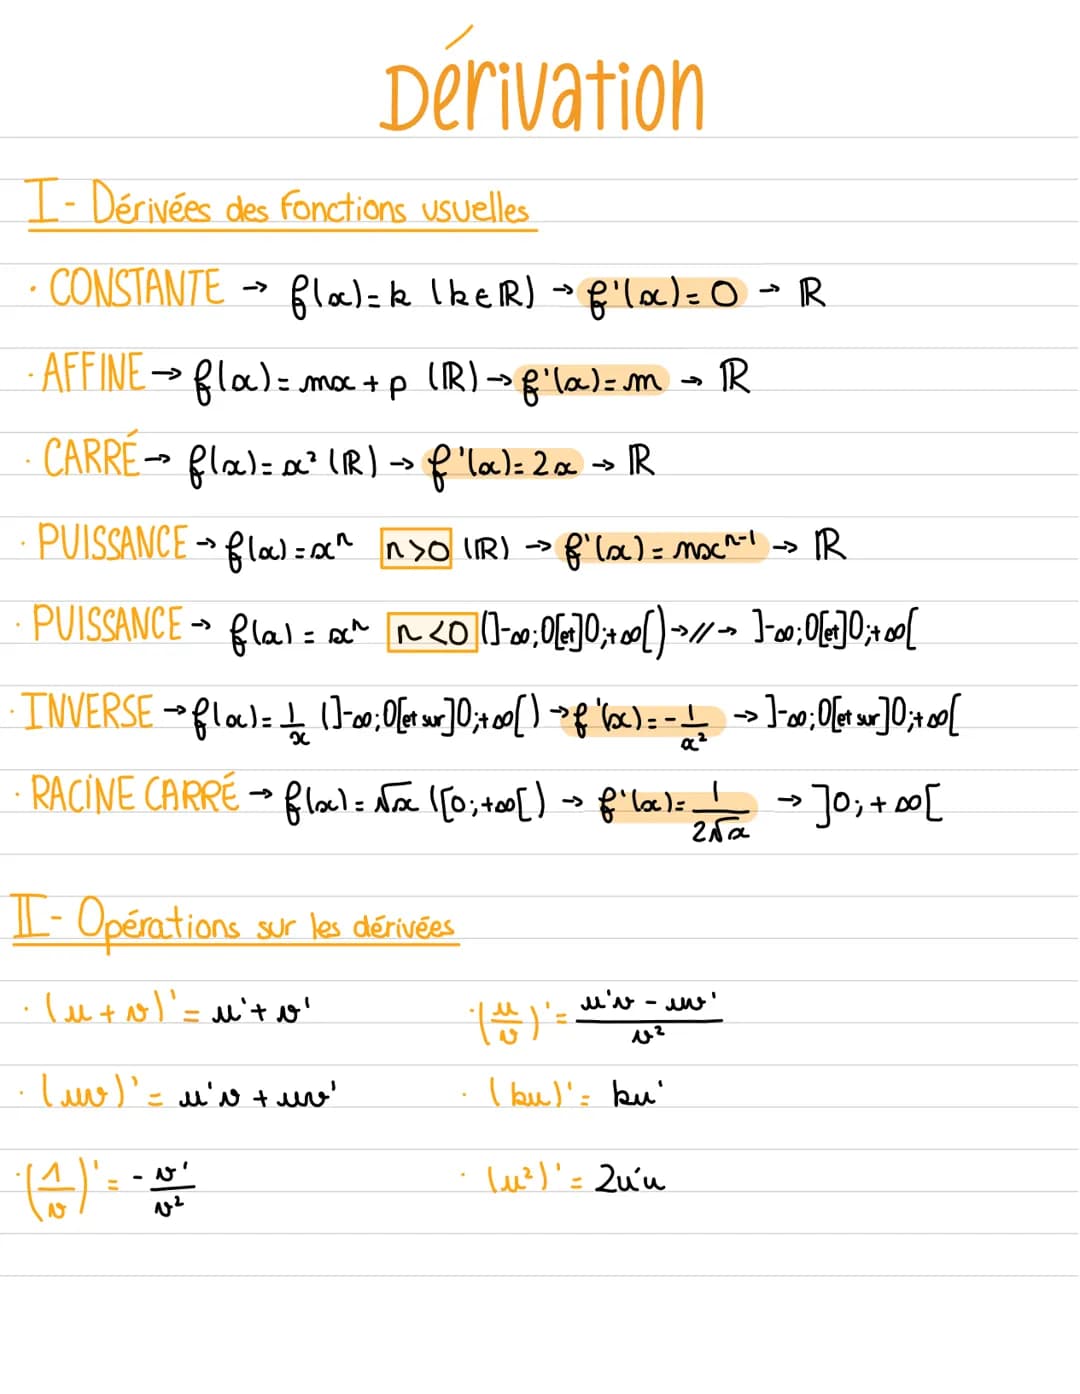 Dérivation
I - Dérivées des fonctions usuelles
· CONSTANTE → f(x) = k (k ∈ ℝ) → f'(x) = 0 → ℝ
· AFFINE → f(x) = mx + p (ℝ) → f'(x) = m → ℝ
· CARRÉ → f(x) = x² (ℝ) → f'(x) = 2x → ℝ
· PUISSANCE → f(x) = xⁿ n>0 (ℝ) → f'(x) = nxⁿ⁻¹ → ℝ
· PUISSANCE → f(x) = xⁿ n<0 (]-∞;0[et]0;+∞[) → // → ]-∞;0[et]0;+∞[
· INVERSE → f(x) = 1/x (]-∞;0[et sur]0;+∞[) → f'(x) = -1/x² → ]-∞;0[et sur]0;+∞[
· RACINE CARRÉ → f(x) = √x ([0;+∞[) → f'(x) = 1/(2√x) → ]0;+∞[
II - Opérations sur les dérivées
· (u + v)' = u' + v' · (u/v)' = (u'v - uv')/v²
· (uv)' = u'v + uv' · (ku)' = ku'
· (1/v)' = - v'/v² · (u²)' = 2u'u